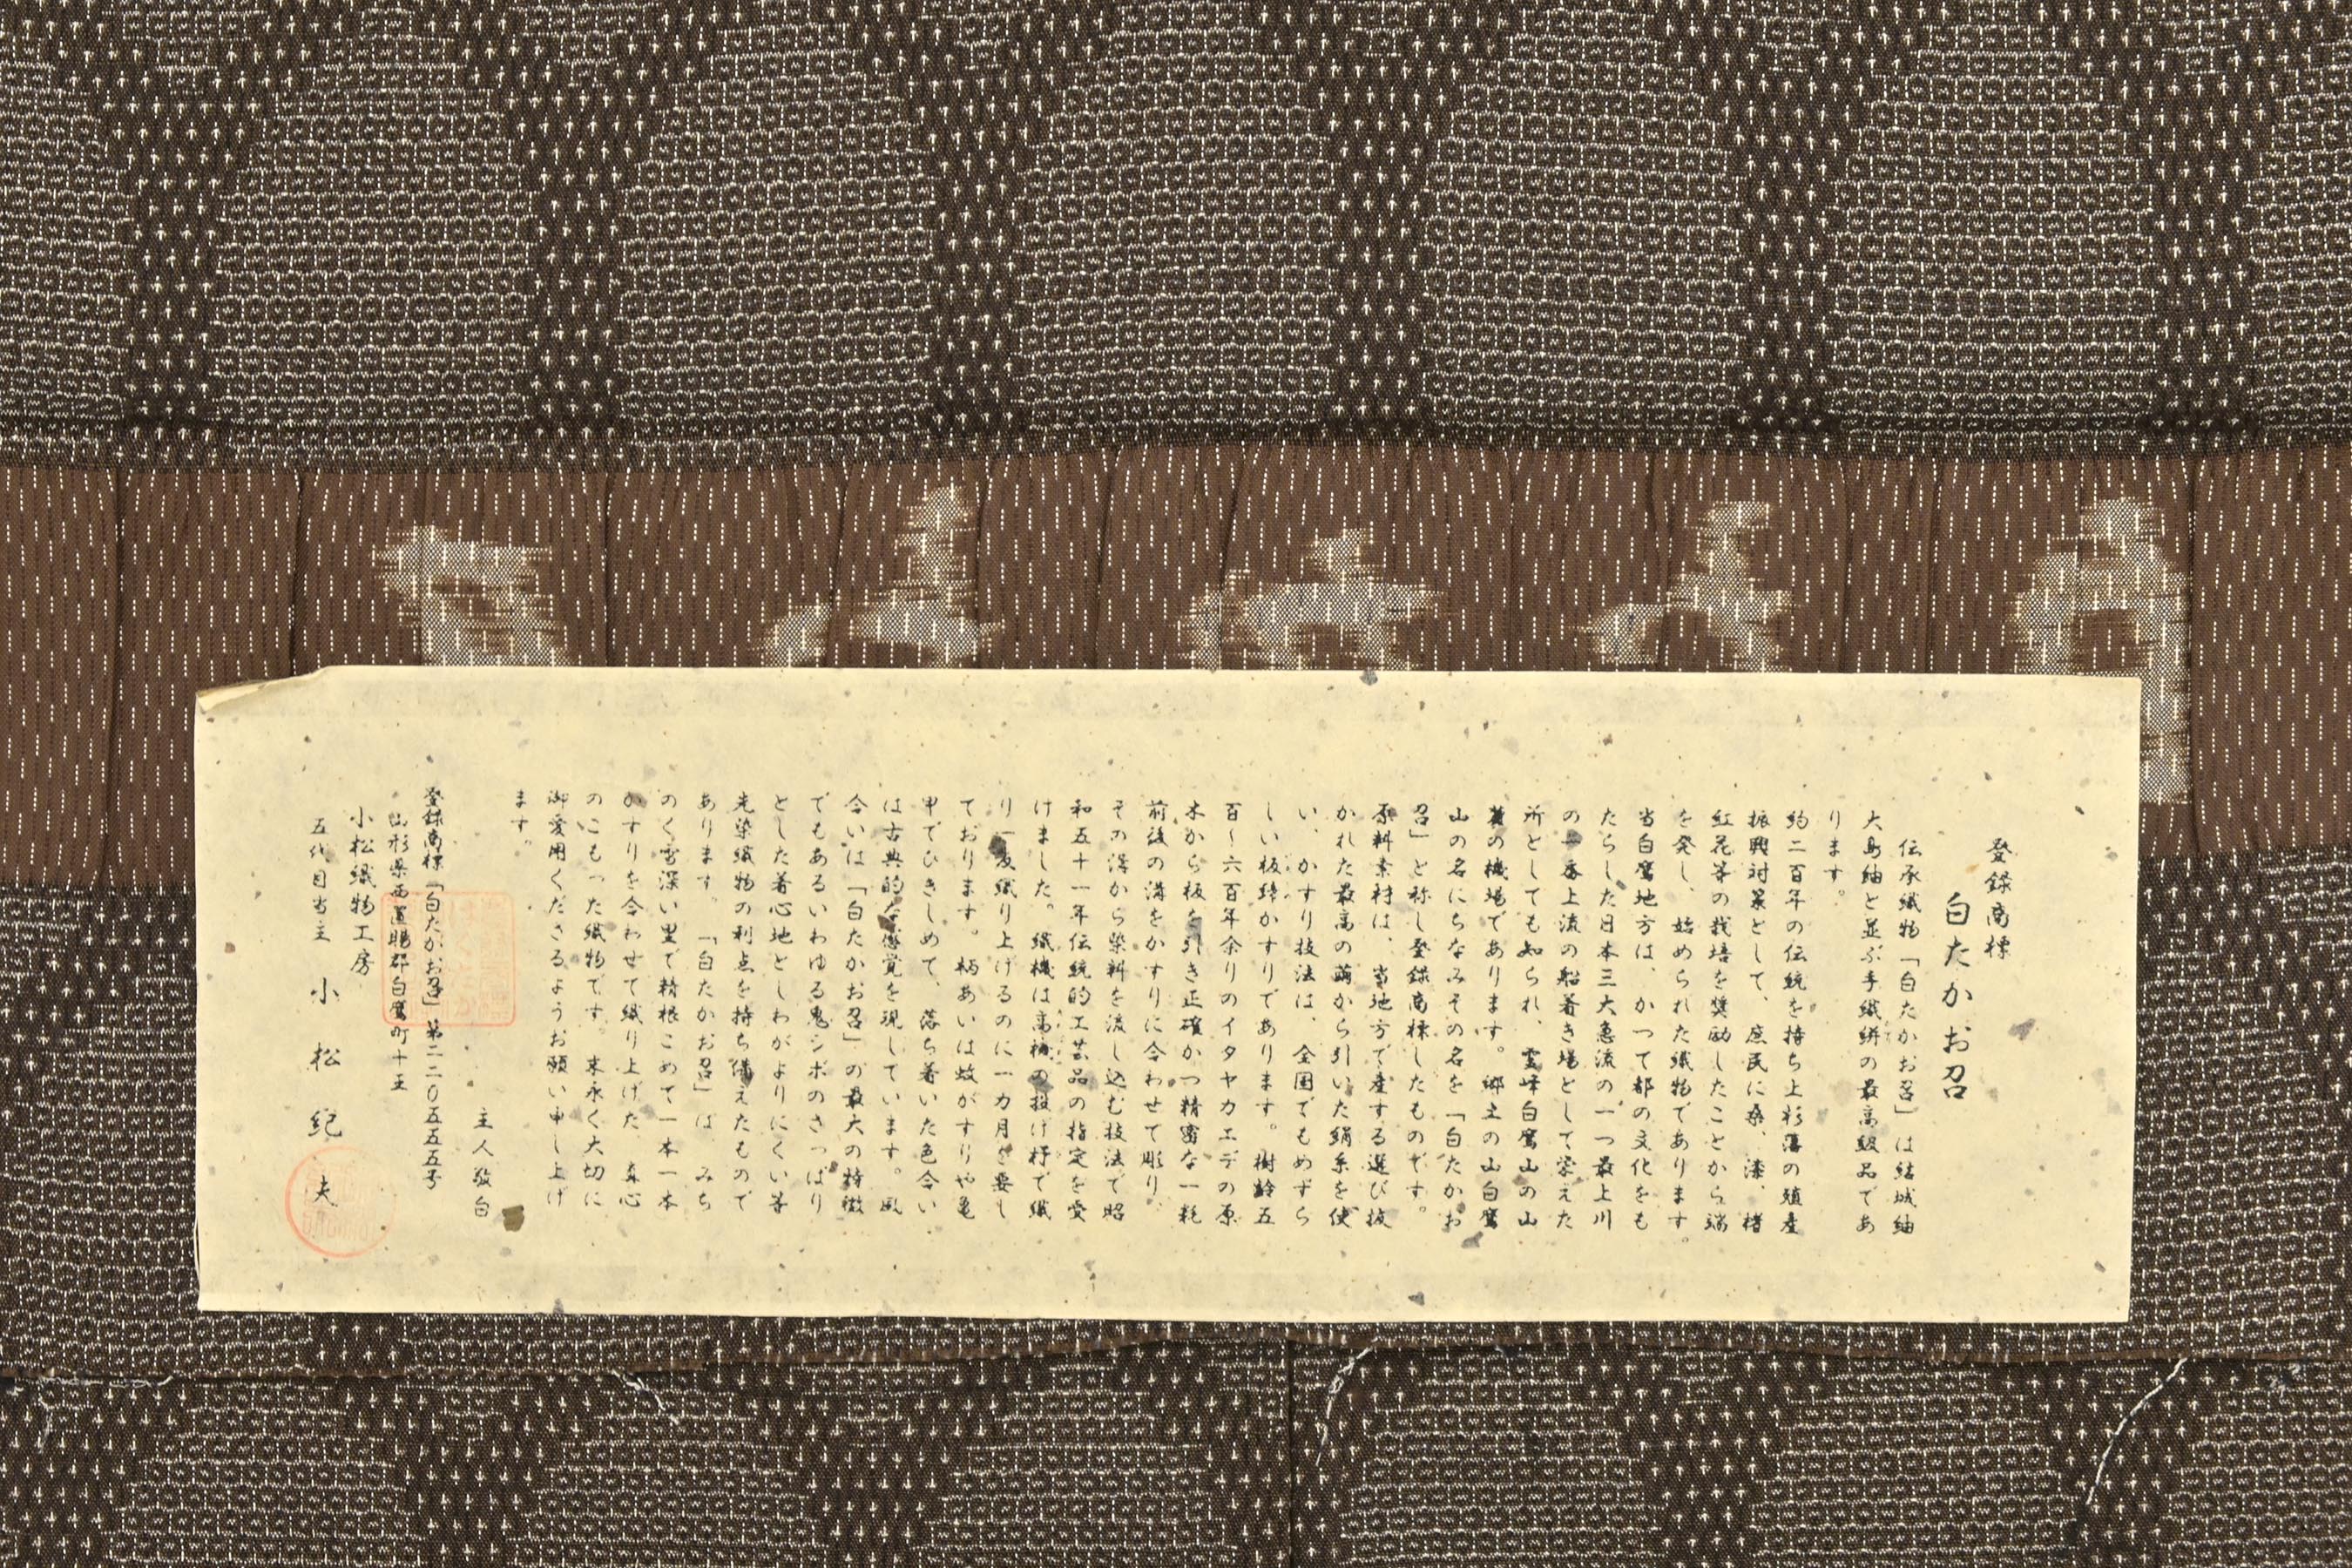 登録商標
白たかお召
伝承織物「白たかお召」は結城紬
大島紬と並ぶ手織絣の最高級品であ
ります。
約二百年の伝統を持ち上杉藩の殖産
振興対策として、庶民に桑、漆、楮
紅花等の栽培を奨励したことから端
を発し、始められた織物であります。
当白鷹地方は、かつて都の文化をも
たらした日本三大急流の一つ最上川
の一番上流の船着き場として栄えた
所としても知られ、霊峰白鷹山の山
麓の機場であります。郷土の山白鷹
山の名にちなみその名を「白たかお
召」と称し登録商標したものです。
原料素材は、当地方で産する選び抜
かれた最高の繭から引いた絹糸を使
い、かすり技法は、全国でもめずら
しい板締かすりであります。樹齢五
百～六百年余りのイタヤカエデの原
木から板を引き正確かつ精密な一耗
前後の溝をかすりに合わせて彫り、
その溝から染料を流し込む技法で昭
和五十一年伝統的工芸品の指定を受
けました。織機は高機の投げ杼で織
り一反織り上げるのに一カ月を要し
ております。柄あいは蚊がすりや亀
甲でひきしめて、落ち着いた色合い
は古典的な感覚を現しています。風
合いは「白たかお召」の最大の特徴
でもあるいわゆる鬼シボのさっぱり
とした着心地としわがよりにくい等
先染織物の利点を持ち備えたもので
あります。「白たかお召」は、みち
のく雪深い里で精根こめて一本一本
かすりを合わせて織り上げた、真心
のこもった織物です。末永く大切に
御愛用くださるようお願い申し上げ
ます。
主人敬白
登録商標「白たかお召」第二二〇五五五号
山形県西置賜郡白鷹町十王
小松織物工房
五代目当主 小松紀夫